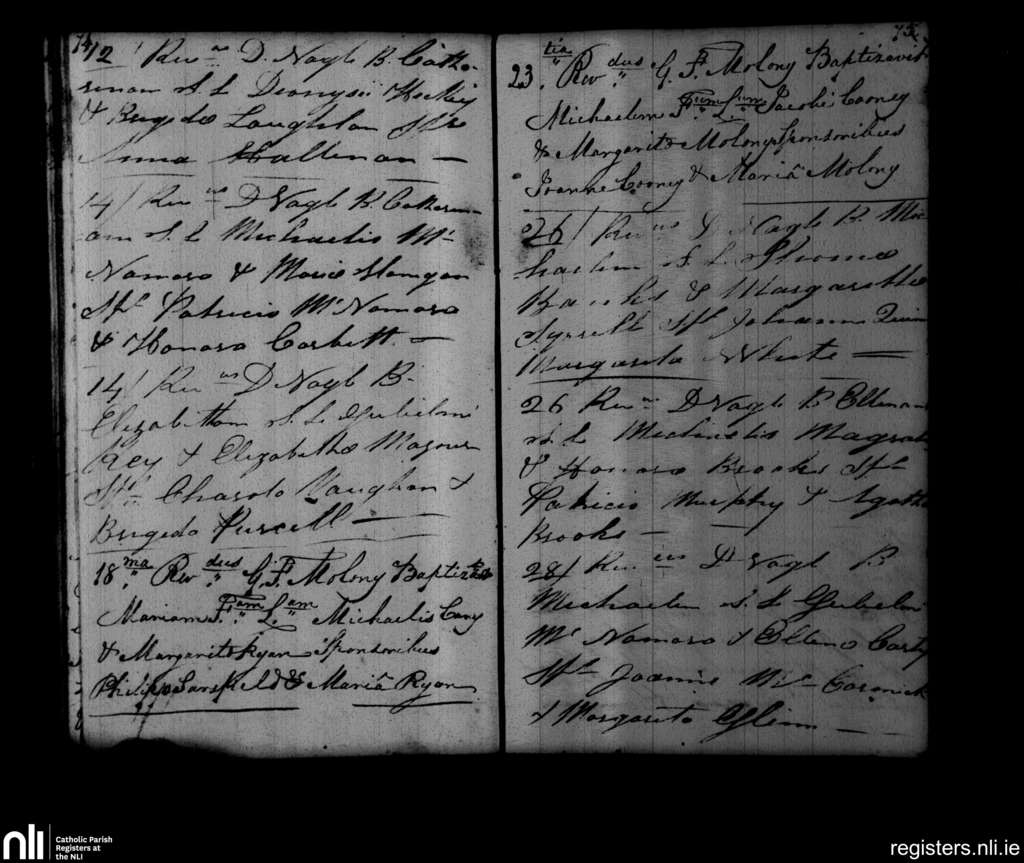 74
12 / Rev.us D. Nagle B. Cathe-
rinam F. L. Dionysii Hickey
& Brigida Laughlan Spr
Anna Hallinan —
14 / Rev.us D Nagle B. Catherin
am F. L. Michaelis Mc
Namara & Maria Hangan
Sps Patricio McNamara
& Honora Corbett —
14 / Rev us D Nagle B.
Elizabetham F. L. Gulielmi
Key & Elizabetha
Sps Vaughan &
Brigeda Purcell —
18 ma Rev dus G. F. Molony Baptizavit
Mariam F.am L.am Michaelis Cary
& Margarita Ryan Sponsoribus
Philippo Sarsfield & Mariâ Ryan
75
23. tia Rev dus G. F. Molony Baptizavit
Michaelem F.um L.um Jacobi Cooney
& Margarita Molony Sponsoribus
Joanne Cooney & Mariâ Molony
26 / Rev us D Nagle B. Mic
haelem F. L. Thoma
Banks & Margaretta
Sps Johanne Quin
Margareta White —
26 Rev us D Nagle B Ellenam
F. L. Michaelis Magrath
& Honora Brooks Sps
Patricio Murphy & Agatha
Brooks —
28 / Rev. us D Nagle B
Michaelem F. L. Gulielmi
Mc Namara & Ellena Carty
Sps Joanne Mc Cormick
& Margarita Glinn —
nli
Catholic Parish
Registers at
the NLI
registers.nli.ie